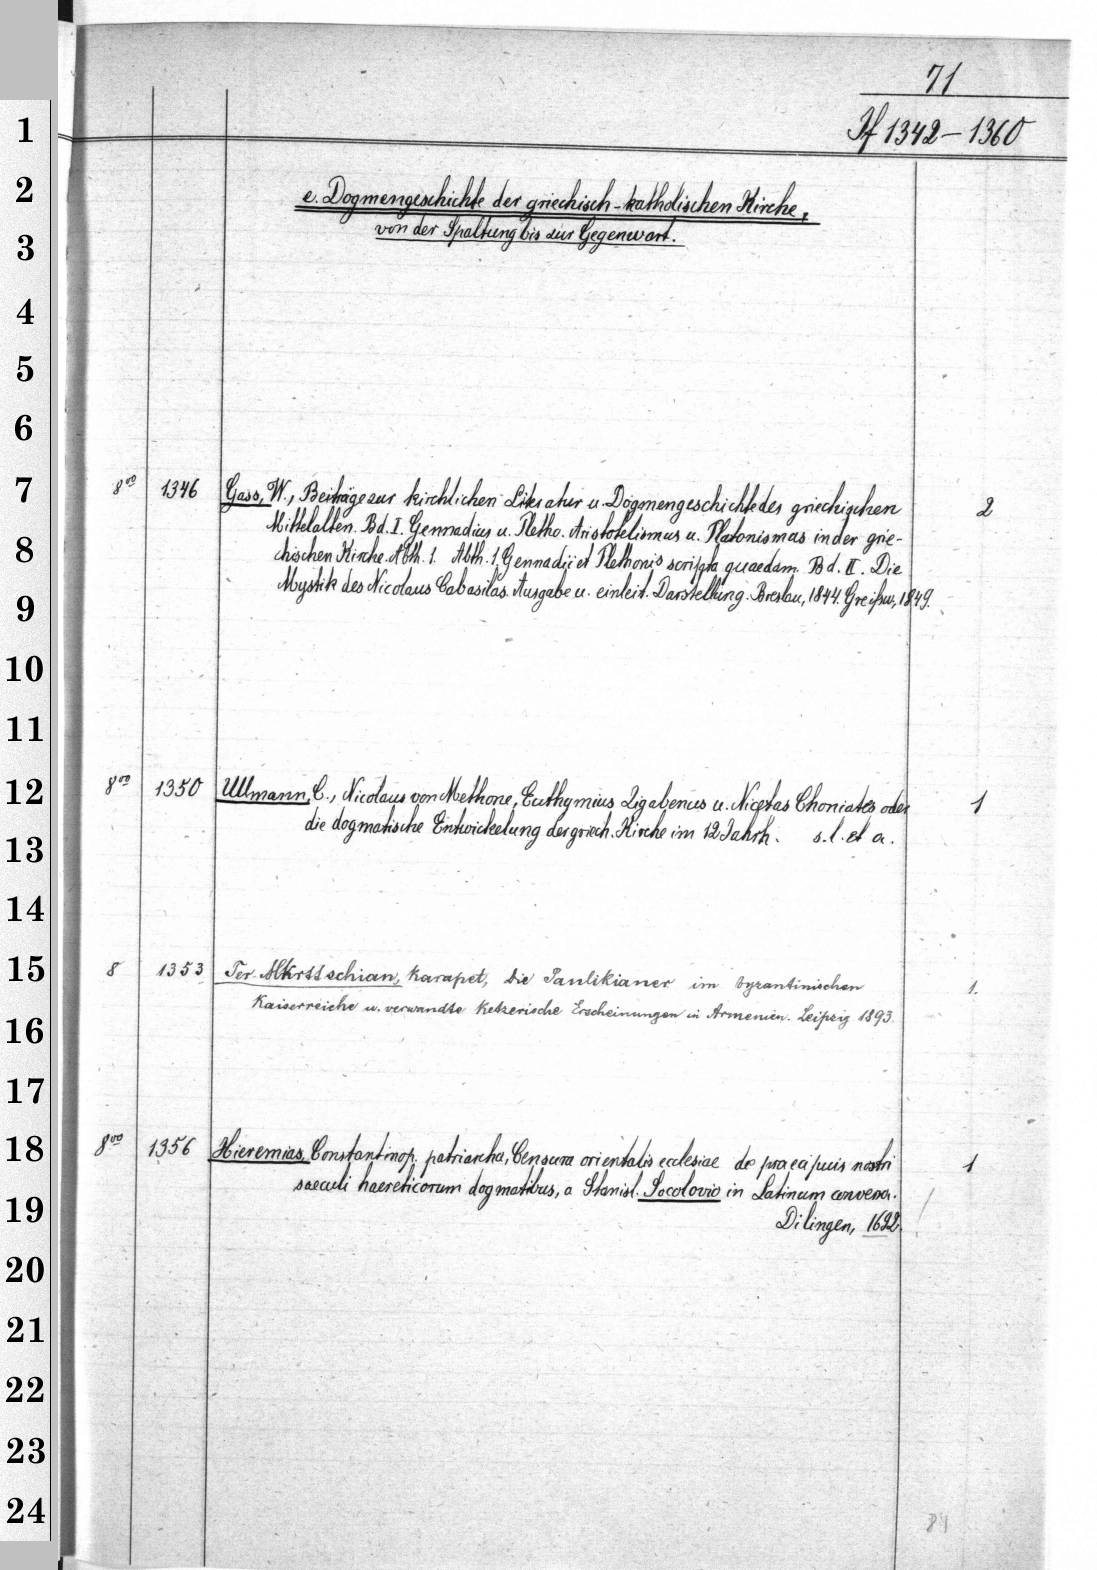 71
If 1342-1360
1
2
3
4
5
6
7
8
9
10
11
12
13
14
15
16
17
18
19
20
21
22
23
24
e. Dogmengeschichte der griechisch-katholischen Kirche,
von der Spaltung bis zur Gegenwart.
8vo 1346 Gass, W., Beiträge zur kirchlichen Literatur u. Dogmengeschichte des griechischen 2
Mittelalters. Bd. I. Gennadius u. Pletho. Aristotelismus u. Platonismus in der grie-
chischen Kirche. Abth. 1. Abth. 1. Gennadii et Plethonis scripta quaedam. Bd. II. Die
Mystik des Nicolaus Cabasilas. Ausgabe u. einleit. Darstellung. Breslau, 1844. Greifsw., 1849.
8vo 1350 Ullmann, C., Nicolaus von Methone, Euthymius Zigabenus u. Nicetas Choniates oder 1
die dogmatische Entwickelung der griech. Kirche im 12 Jahrh. s. l. et a.
8 1353 Ter-Mkrttschian, Karapet, Die Paulikianer im byzantinischen 1.
Kaiserreiche u. verwandte ketzerische Erscheinungen in Armenien. Leipzig 1893.
8vo 1356 Hieremias, Constantinop. patriarcha, Censura orientalis ecclesiae de praecipuis nostri 1
saeculi haereticorum dogmatibus, a Stanisl. Socolovio in Latinum conversa.
Dilingen, 1692.
84